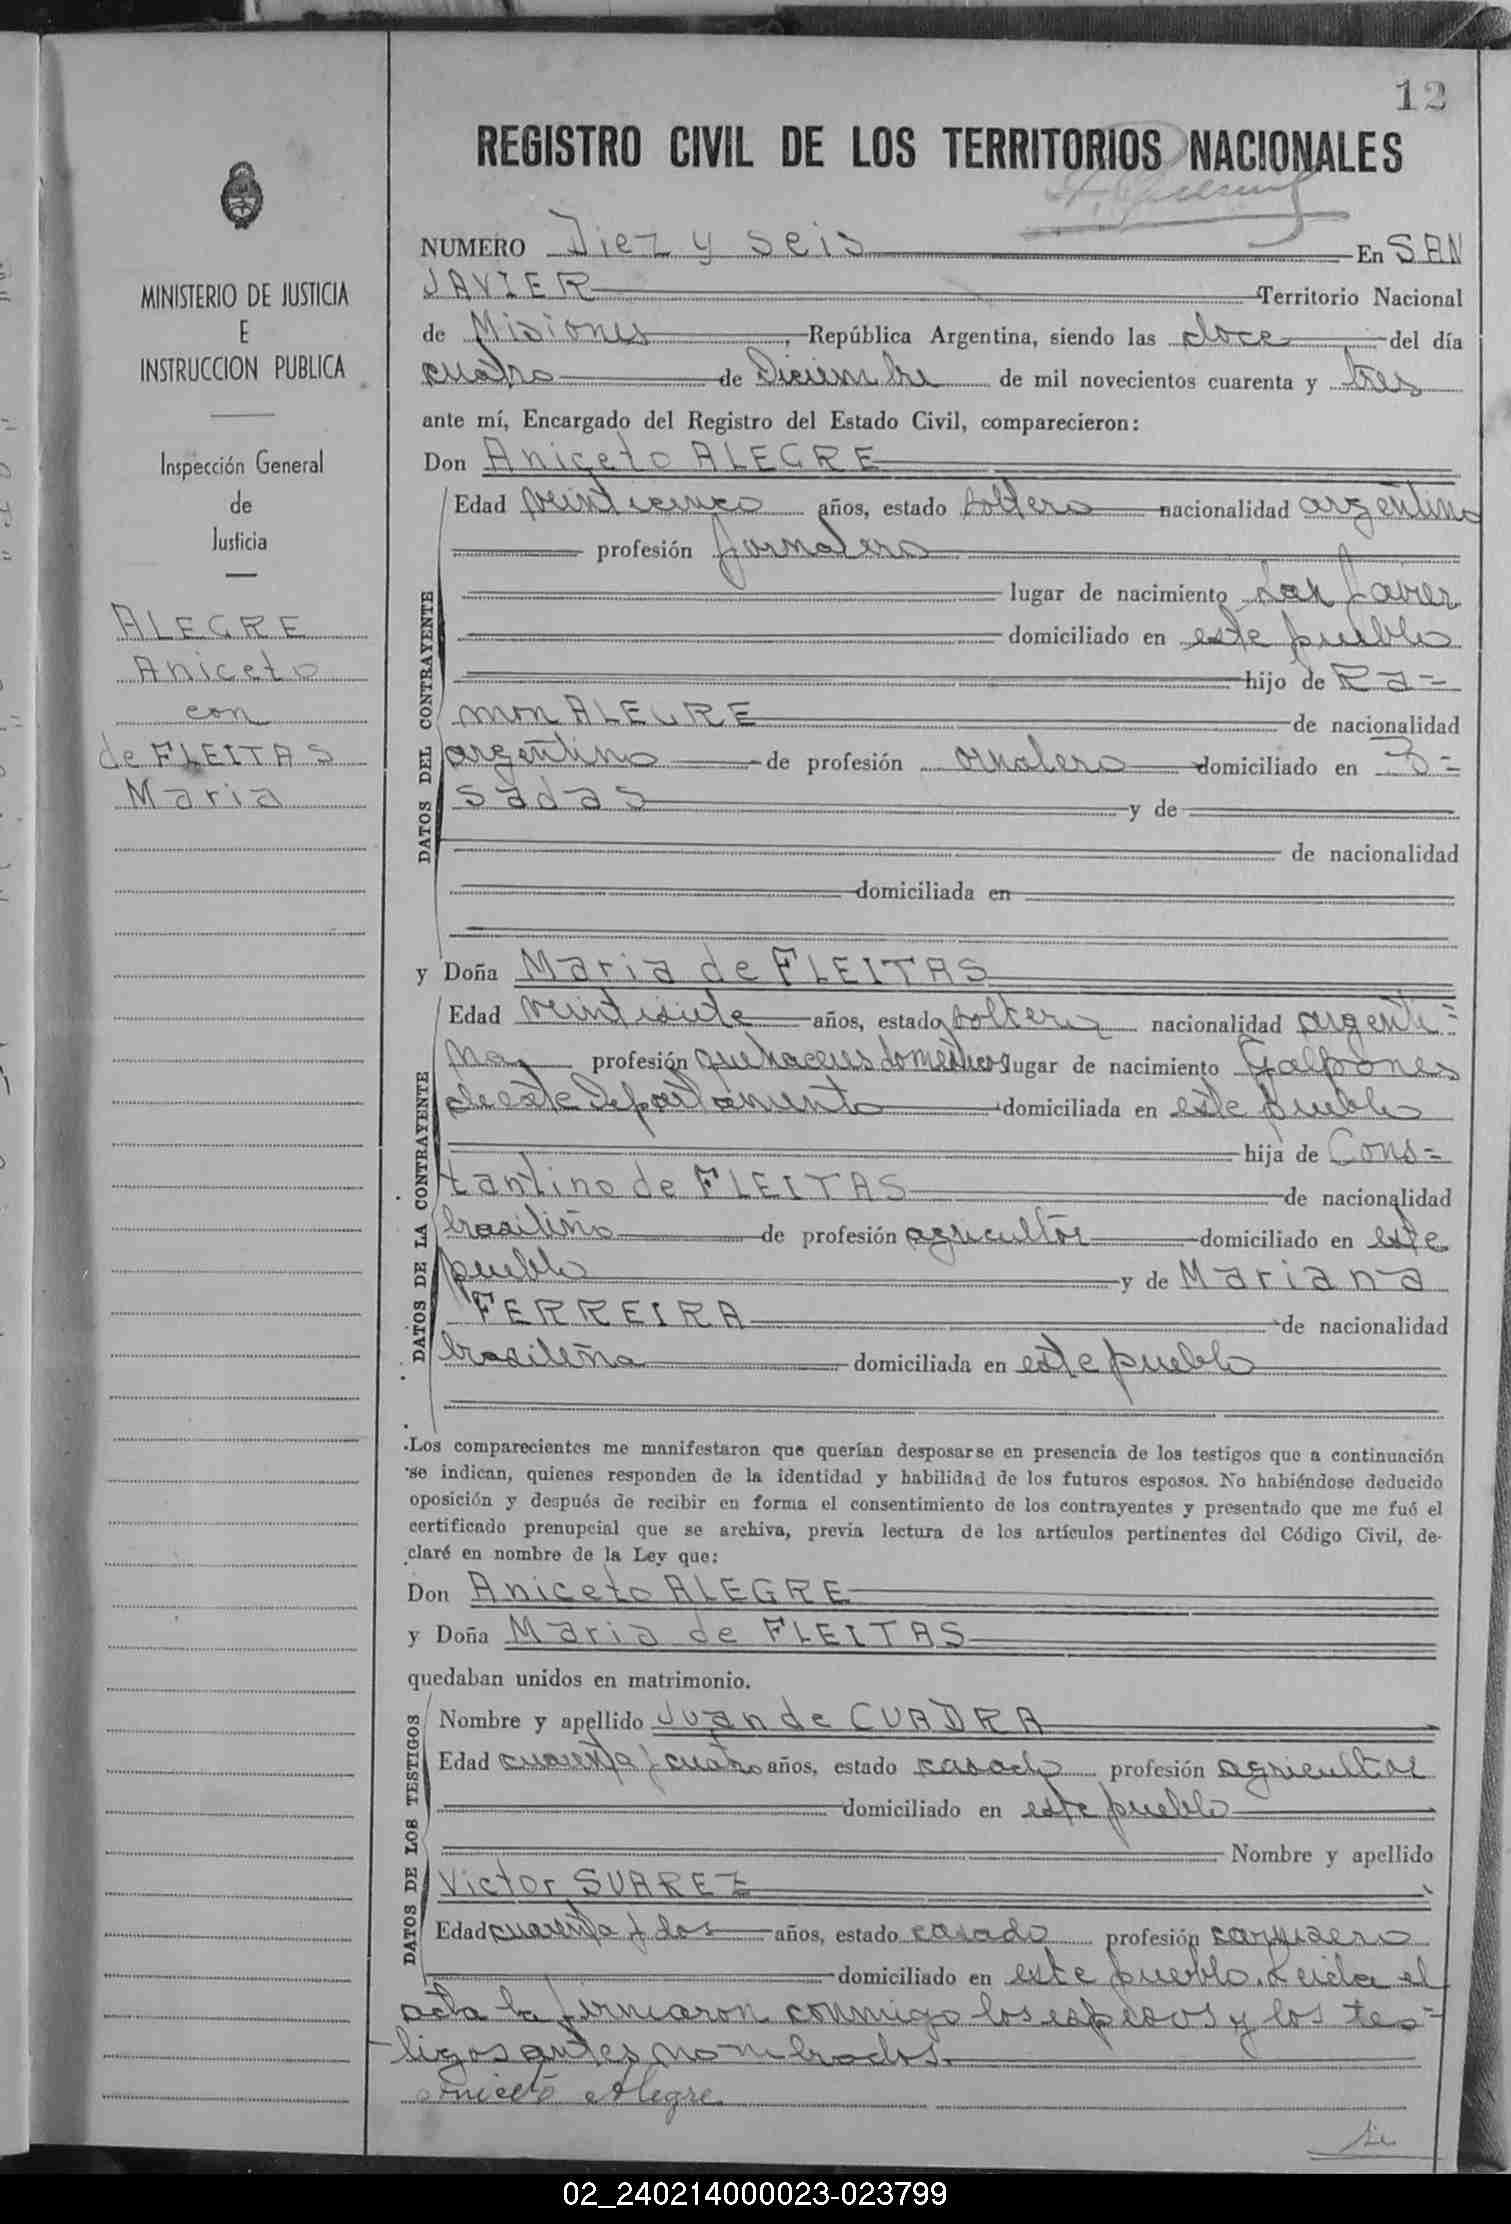 12
REGISTRO CIVIL DE LOS TERRITORIOS NACIONALES
MINISTERIO DE JUSTICIA
E
INSTRUCCION PUBLICA
Inspección General
de
Justicia
ALEGRE
Aniceto
con
de FLEITAS
Maria
NUMERO Diez y seis En SAN
JAVIER Territorio Nacional
de Misiones, República Argentina, siendo las doce del día
cuatro de Diciembre de mil novecientos cuarenta y tres
ante mí, Encargado del Registro del Estado Civil, comparecieron:
Don Aniceto ALEGRE
DATOS DEL CONTRAYENTE
Edad veinticinco años, estado soltero nacionalidad argentino
profesión jornalero
lugar de nacimiento San Javier
domiciliado en este pueblo
hijo de Ra=
mon ALEGRE de nacionalidad
argentino de profesión domiciliado en
sadas y de
de nacionalidad
domiciliada en
y Doña Maria de FLEITAS
DATOS DE LA CONTRAYENTE
Edad veintisiete años, estado soltera nacionalidad argenti=
na profesión quehaceres domesticos lugar de nacimiento Galpones
de este Departamento domiciliada en este pueblo
hija de Cons=
tantino de FLEITAS de nacionalidad
brasileño de profesión agricultor domiciliado en este
pueblo y de Mariana
FERREIRA de nacionalidad
brasileña domiciliada en este pueblo
Los comparecientes me manifestaron que querían desposarse en presencia de los testigos que a continuación
se indican, quienes responden de la identidad y habilidad de los futuros esposos. No habiéndose deducido
oposición y después de recibir en forma el consentimiento de los contrayentes y presentado que me fué el
certificado prenupcial que se archiva, previa lectura de los artículos pertinentes del Código Civil, de-
claré en nombre de la Ley que:
Don Aniceto ALEGRE
y Doña Maria de FLEITAS
quedaban unidos en matrimonio.
DATOS DE LOS TESTIGOS
Nombre y apellido Juan de CUADRA
Edad cuarenta y cuatro años, estado casado profesión agricultor
domiciliado en este pueblo
Nombre y apellido
Victor SUAREZ
Edad cuarenta y dos años, estado casado profesión
domiciliado en este pueblo. Leida el
acta la firmaron conmigo los esposos y los tes=
tigos antes nombrados.
Aniceto Alegre
02_240214000023-023799